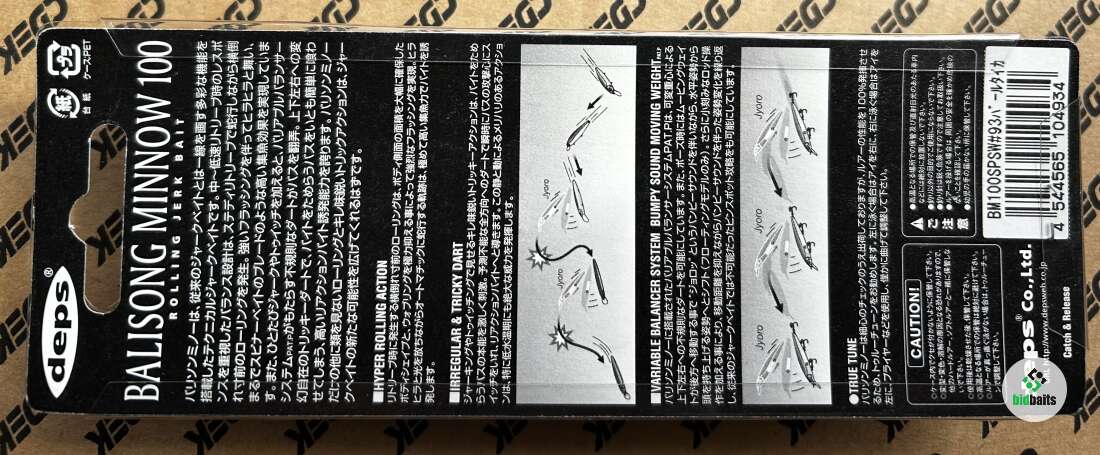 deps
BALISONG MINNOW 100
ROLLING JERK BAIT
紙
台紙
プラ
ケースPET
バリソンミノーは、従来のジャークベイトとは一線を画す多彩な機能を
搭載したテクニカルジャークベイトです。中〜低速リトリーブ時のレスポ
ンスを重視したバランス設計は、ステディリトリーブで蛇行しながら横倒
れ寸前のローリングを発生。強いフラッシングを伴ってヒラヒラと舞い、
まるでスピナーベイトのブレードのような高い集魚効果を実現していま
す。また、ひとたびジャークやトゥイッチを加えると、バリアブルバランサー
システムPAT.P.がもたらす不規則なダートがバスを翻弄。上下左右への変
幻自在のトリッキーダートで、バイトをためらうバスをいとも簡単に喰わ
せてしまう、高いリアクションバイト誘発能力を誇ります。バリソンミノー
だけの他に類を見ないローリングとキレ味鋭いトリックアクションは、ジャー
クベイトの新たな可能性を広げてくれるはずです。
■HYPER ROLLING ACTION
リトリーブ時に発生する横倒れ寸前のローリングは、ボディ側面の面積を大幅に確保した
ボディシェイプとウォブリングを極力抑える事によって強烈なフラッシングを実現。ヒラ
ヒラと光を放ちながらオートマチックに蛇行する軌跡は、極めて高い集魚力でバイトを誘
発します。
■IRREGULAR & TRICKY DART
ジャーキングやトゥイッチングで見せるキレ味鋭いトリッキーアクションは、バイトをため
らうバスの本能を激しく刺激。予測不能な全方向へのダートで瞬時にバスの攻撃心にス
イッチを入れ、リアクションバイトへと導きます。この静と動によるメリハリのあるアクショ
ンは、特に低水温期にも絶大な威力を発揮します。
Jyoro
Jyoro
■VARIABLE BALANCER SYSTEM BUMPY SOUND MOVING WEIGHT PAT.P
バリソンミノーに搭載されたバリアブルバランサーシステムPAT.P.は、可変重心による
上下左右への不規則なダートを可能にしています。また、ポーズ時にはムービングウェイ
トが後方へ移動する事で“ジョロッ”というバンピーサウンドを伴いながら、水平姿勢から
頭を持ち上げる姿勢へとシフト(フローティングモデルのみ)。さらに小刻みなロッド操
作を加える事により、移動距離を抑えながらバンピーサウンドを伴った姿勢変化を繰り返
し、従来のジャークベイトでは不可能だったピンスポット攻略をも可能にしています。
Jyoro
Jyoro
Jyoro
●TRUE TUNE
バリソンミノーは細心のチェックのうえ出荷しておりますが、ルアーの性能を100%発揮させ
るため、トゥルーチューンをお勧めします。左に泳ぐ場合はアイを右に、右に泳ぐ場合はアイを
左に、プライヤーなどを使用し、僅かに曲げて調整して下さい。
ご注意
CAUTION!
deps Co.,Ltd.
http://www.depsweb.co.jp
Catch & Release
BM100SPSW#93パールタイカ
4 544565 104934
bidbaits
CDEK
CDEK
CDEK